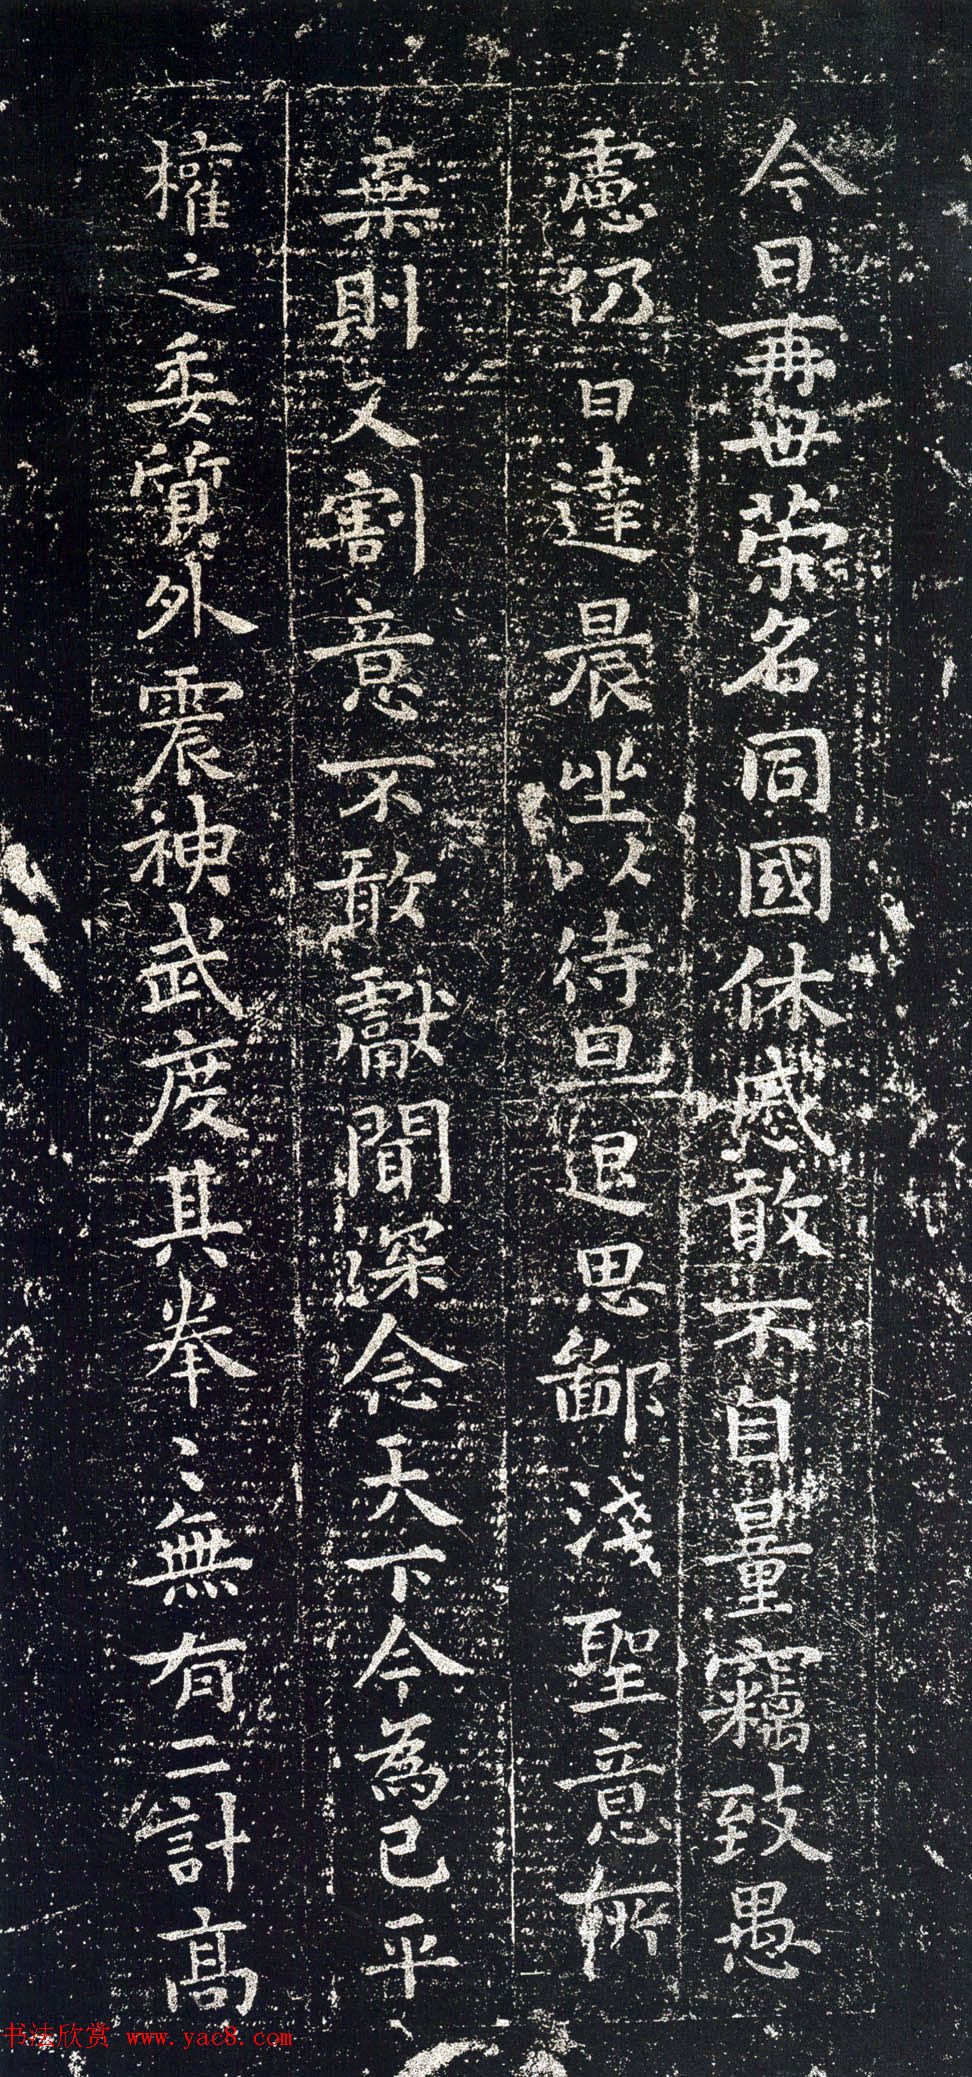 今日再世荣名同國休慼敢不自量竊致愚
慮仍日達晨坐以待旦退思鄙淺聖意所
棄則又割意不敢獻聞深念天下今為已平
權之委質外震神武度其拳〻無有二計高
书法欣赏 www.yac8.com